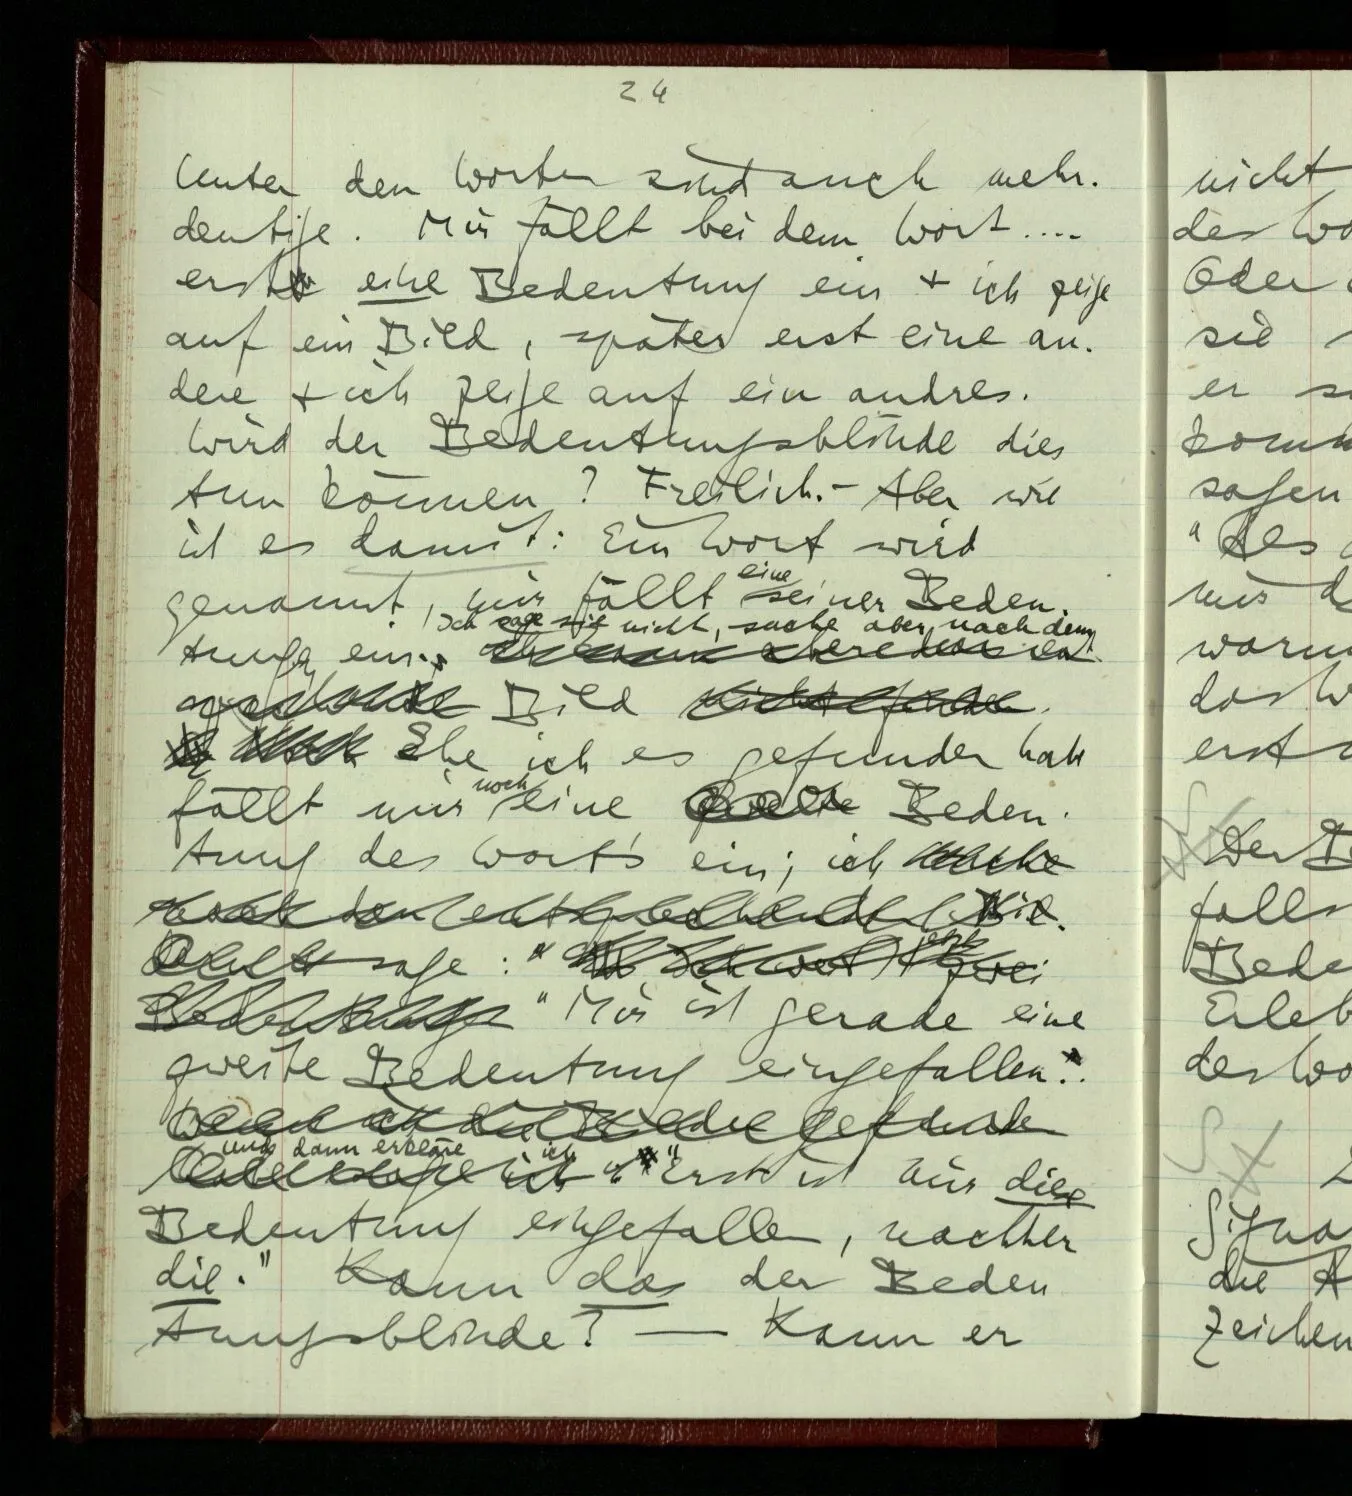 24
Unter den Worten sind auch mehr-
deutige. Mir fällt bei dem Wort ....
erst eine Bedeutung ein + ich zeige
auf ein Bild, später erst eine an-
dere + ich zeige auf ein andres.
Wird der Bedeutungsblinde dies
tun können? Freilich. – Aber wie
ist es damit: Ein Wort wird
genannt, mir fällt eine seiner Bedeu-
tungen ein. Ich sage sie nicht, suche aber nach dem
Bild
Ehe ich es gefunden habe
fällt mir noch eine Bedeu-
tung des Worts ein; ich
sage: "
" Mir ist gerade eine
zweite Bedeutung eingefallen."
und dann erkläre ich
"Erst ist mir diese
Bedeutung eingefallen, nachher
die." Kann das der Bedeu
tungsblinde? — Kann er
nicht
des Wo
Oder
sie
er
komm
sagen
"Des
mir d
warum
das W
erst
Der B
falls
Bede
Erleb
des Wo
Signa
die A
Zeichen